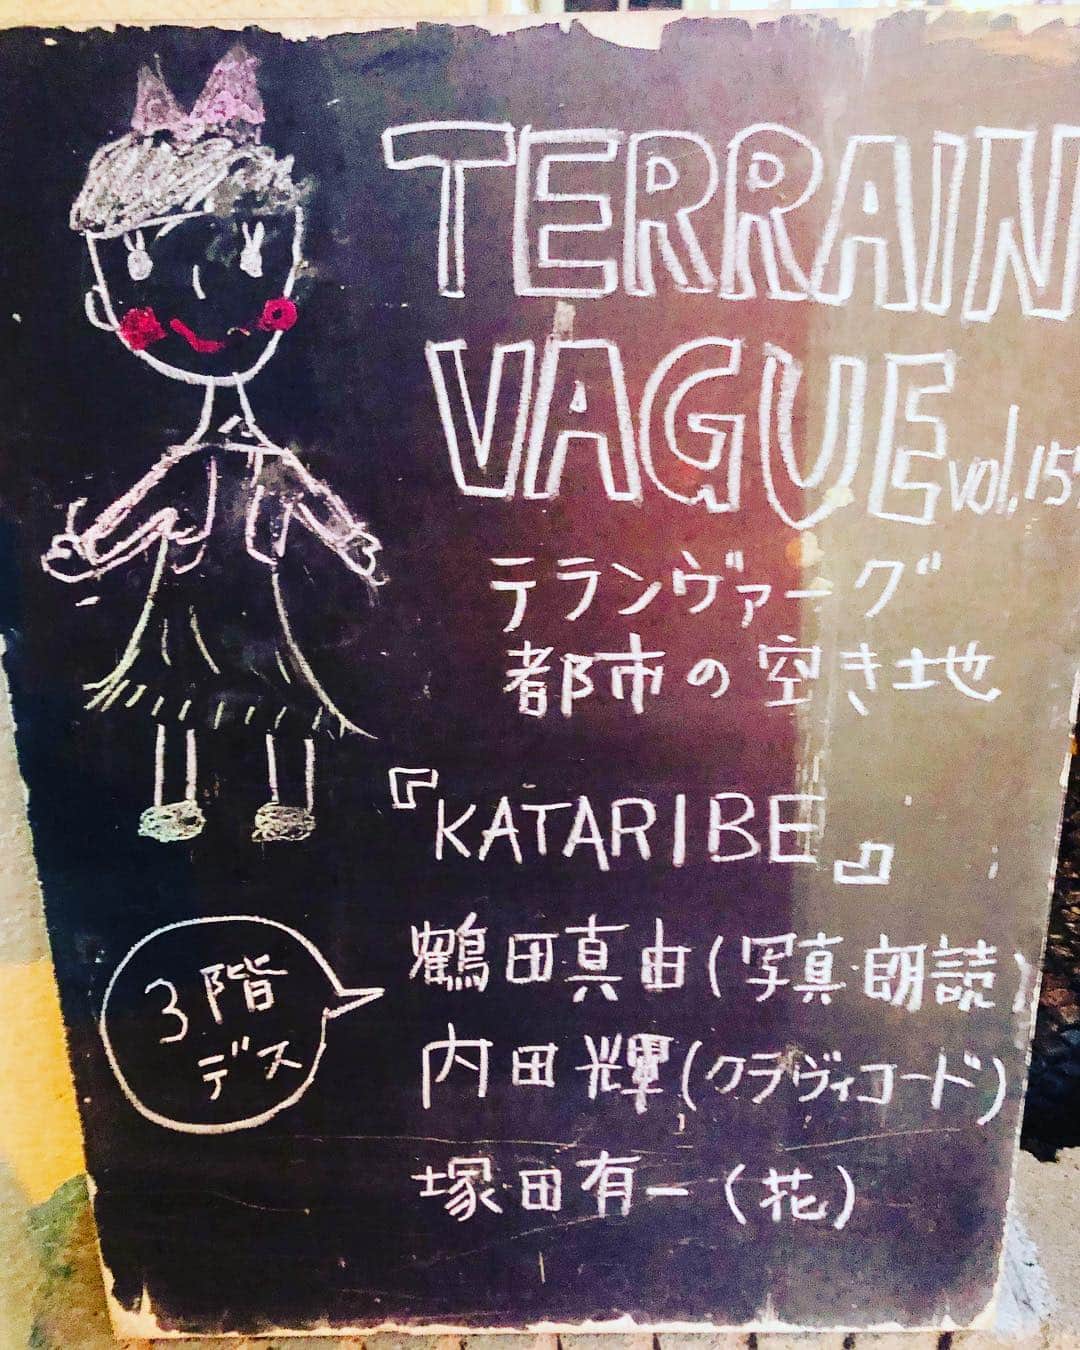 TERRAIN
VAGUE vol.15
テランヴァーグ
都市の空き地
『KATARIBE』
鶴田真由(写真・朗読)
3階
デス
内田輝(クラヴィコード)
塚田有一(花)